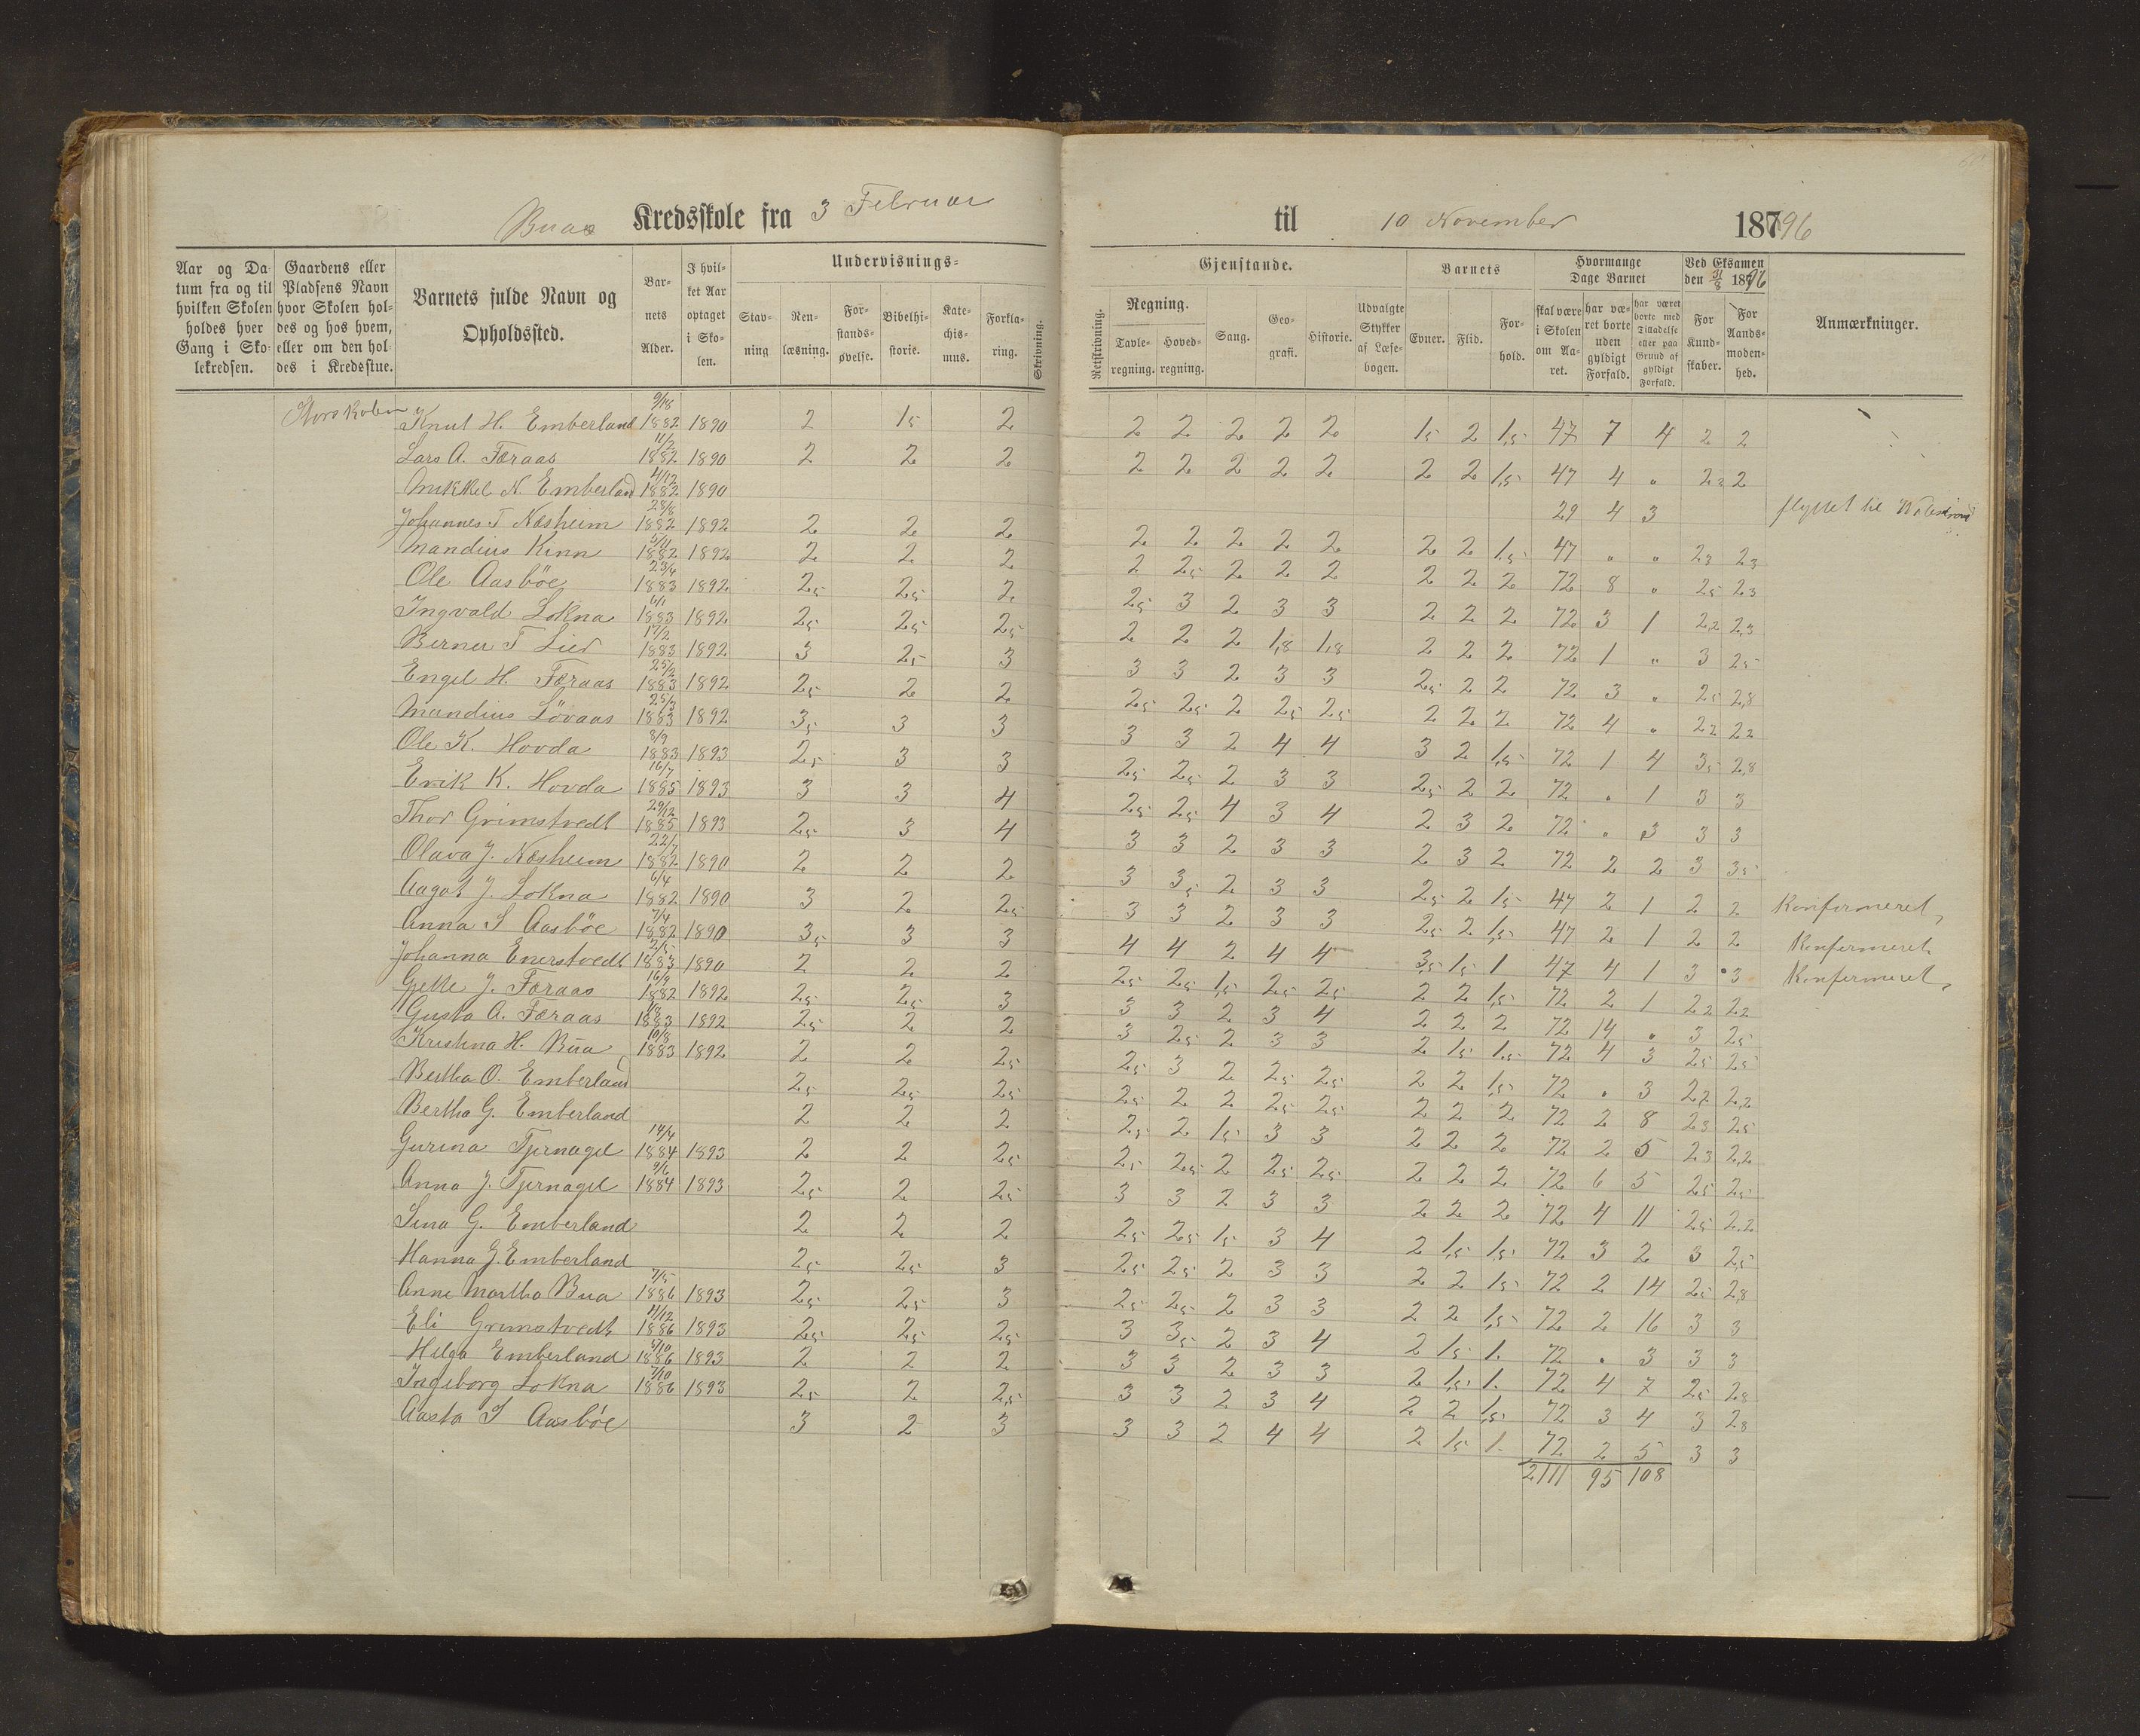 Buas Kredsskole fra 3 Februar til 10 November 187 96
Aar og Datum fra og til hvilken Skolen holdes hver Gang i Skolekredsen.
Gaardens eller Pladsens Navn hvor Skolen holdes og hos hvem, eller om den holdes i Kredsstue.
Barnets fulde Navn og Opholdssted.
Barnets Alder.
I hvilket Aar optaget i Skolen.
Undervisnings=
Stavning
Renlæsning.
Forstandsøvelse.
Bibelhistorie.
Katechismus.
Forklaring.
Skrivning.
Gjenstande.
Retskrivning.
Regning.
Tavleregning.
Hovedregning.
Sang.
Geografi.
Historie.
Udvalgte Stykker af Læsebogen.
Barnets
Evner.
Flid.
Forhold.
Hvormange Dage Barnet
skal være i Skolen om Aaret.
har været borte uden gyldigt Forfald.
har været borte med Tilladelse eller paa Grund af gyldigt Forfald.
Ved Eksamen den 31/8 1896
For Kundskaber.
For Aandsmodenhed.
Anmærkninger.
Storskolen
Knut H. Emberland 9/18 1882 1890 2 1,5 2 2 2 2 2 2 1,5 2 1,5 47 7 4 2 2
Lars A. Færaas 11/2 1882 1890 2 2 2 2 2 2 2 2 2 2 1,5 47 4 " 2,2 2
Mikkel N. Emberland 4/12 1882 1890 29 4 3 flyttet til
Johannes T Næsheim 28/8 1882 1892 2 2 2 2 2 2 2 2 2 2 1,5 47 " " 2,3 2,3
Mandius Kinn 5/11 1882 1892 2 2 2 2 2,5 2 2 2 2 2 2 72 8 " 2,5 2,3
Ole Aasböe 23/4 1883 1892 2,5 2,5 2 2,5 3 2 3 3 2 2 2 72 3 1 2,2 2,3
Ingvald Lokna 6/1 1883 1892 2,5 2,5 2,5 2 2 2 1,8 1,8 2 2 2 72 1 " 3 2,5
Berner T Lier 17/2 1883 1892 3 2,5 3 3 3 2 3 3 2,5 2 2 72 3 " 2,5 2,8
Engel H. Færaas 25/2 1883 1892 2,5 2 2 2,5 2,5 2 2,5 2,5 2 2 2 72 4 " 2,2 2,2
Mandius Lövaas 25/3 1883 1892 3,5 3 3 3 3 2 4 4 3 2 1,5 72 1 4 3,5 2,8
Ole K. Hovda 8/9 1883 1893 2,5 3 3 2,5 2,5 2 3 3 2,5 2 2 72 " 1 3 3
Erik K. Hovda 16/7 1885 1893 3 3 4 2,5 2,5 4 3 4 2 3 2 72 " 3 3 3
Thor Grimstvedt 29/12 1885 1893 2,5 3 4 3 3 2 3 3 2 3 2 72 2 2 3 3,5
Olava J. Næsheim 22/1 1882 1890 2 2 2 3 3,5 2 3 3 2,5 2 1,5 47 2 1 2 2 Konfirmeret,
Aagot J. Lokna 6/4 1882 1890 3 2 2,5 3 3 2 3 3 2,5 2 1,5 47 2 1 2 2 Konfirmeret.
Anna S Aasböe 7/4 1882 1890 3,5 3 3 4 4 2 4 4 3,5 1,5 1 47 4 1 3 3 Konfirmeret,
Johanna Enerstvedt 2/5 1883 1890 2 2 2 2,5 2,5 1,5 2,5 2,5 2 2 1,5 72 2 1 2,2 2,2
Gjette J. Færaas 16/9 1882 1892 2,5 2,5 3 3 3 2 3 4 2 2 2 72 14 " 3 2,5
Gusta A. Færaas 1883 1892 2,5 2 2 3 2,5 2 3 3 2 1,5 1,5 72 4 3 2,5 2,5
Kristina H. Bua 10/8 1883 1892 2 2 2,5 2,5 3 2 2,5 2,5 2 2 1,5 72 " 3 2,2 2,2
Bertha O. Emberland 2,5 2,5 2,5 2,5 2 2 2,5 2,5 2 2 2 72 2 8 2,3 2,5
Bertha G. Emberland 2 2 2 2,5 2 1,5 3 3 2 2 2 72 2 5 2,3 2,2
Gurina Tjernagel 14/4 1884 1893 2 2 2,5 2,5 2,5 2 2,5 2,5 2 2 2 72 6 5 2,5 2,5
Anna J. Tjernagel 9/6 1884 1893 2,5 2 2,5 3 3 2 3 3 2 2 2 72 4 11 2,5 2,2
Sina G. Emberland 2 2 2 2,5 2,5 1,5 3 4 2 1,5 1,5 72 3 2 3 2,5
Hanna J. Emberland 2,5 2,5 3 2,5 2,5 2 3 3 2 2 1,5 72 2 14 2,5 2,8
Anne Martha Bua 7/5 1886 1893 2,5 2,5 3 2,5 2,5 2 3 3 2 2 1,5 72 2 16 3 3
Eli Grimstvedt 11/12 1886 1893 2,5 2,5 2,5 3 3,5 2 3 4 2 1,5 1. 72 " 3 3 3
Helga Emberland 5/10 1886 1893 2 2 2 3 3 2 3 3 2 1,5 1. 72 4 7 2,5 2,8
Ingeborg Lokna 7/10 1886 1893 2,5 2 2,5 3 3 2 3 4 2 2 1,5 72 3 4 3 2,8
Aasta S Aasböe 3 2 3 3 3 2 4 4 2 1,5 1. 72 2 5 3 3
2111 95 108